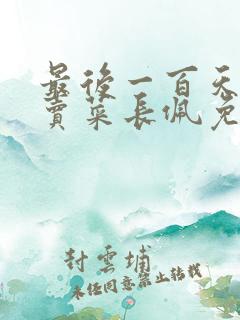 最後一百天
賣菜長佩免
封雲埔
未经同意禁止转载